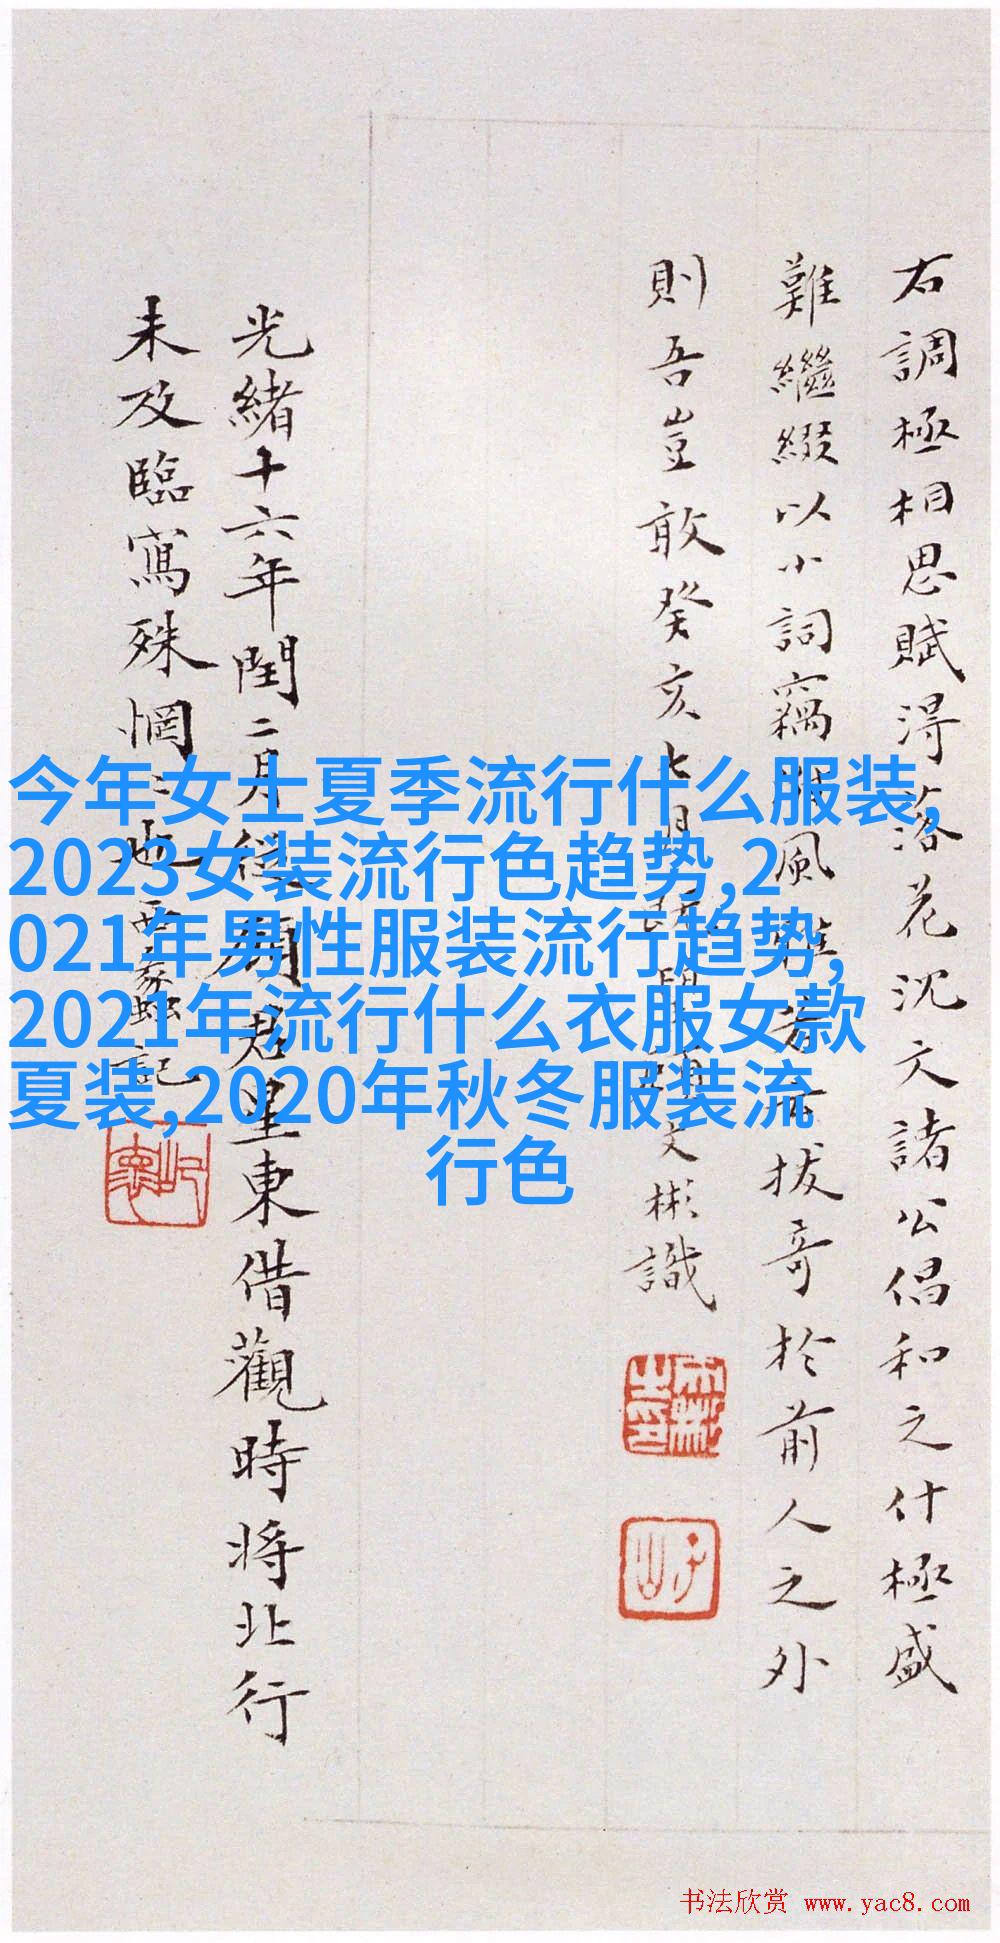 右調極相思賦得落花沈文諸公倡和之什極盛
難繼綴以小詞竊 風雅 拔奇於前人之外
則吾豈敢癸亥七月 文彬識
光緒十六年閏二月從 君星東借觀時將北行
未及臨寫殊惘〻也 西蠡記
今年女士夏季流行什么服装,
2023女装流行色趋势,2
021年男性服装流行趋势,
2021年流行什么衣服女款
夏装,2020年秋冬服装流
行色
书法欣赏 www.yac8.com